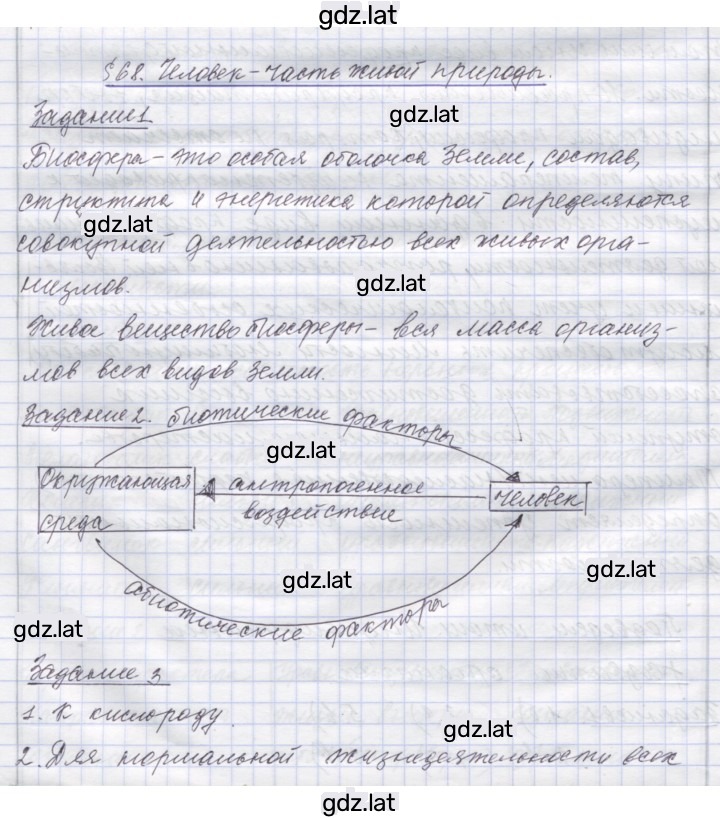 gdz.lat
§68. Человек - часть живой природы.
Задание 1
gdz.lat
Биосфера - это особая оболочка Земли, состав,
структура и энергетика которой определяются
gdz.lat
совокупной деятельностью всех живых орга-
низмов.
gdz.lat
Живое вещество биосферы - вся масса организ-
мов всех видов Земли.
Задание 2. биотические факторы
gdz.lat
Окружающая
среда
антропогенное
воздействие
человек
gdz.lat
gdz.lat
абиотические факторы
gdz.lat
Задание 3
1. К кислороду.
gdz.lat
2. Для нормальной жизнедеятельности всех
gdz.lat